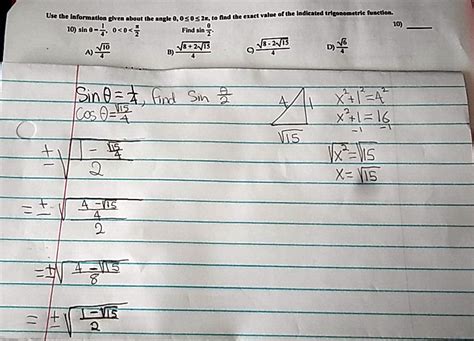 Use the information given about the angle θ, 0 ≤ θ ≤ 2π, to find the exact value of the indicated trigonometric function.
10) sin θ = 1/4, 0 < θ < π/2 Find sin θ/2. 10)
A) √10/4 B) √(8 + 2√15)/4 C) √(8 - 2√15)/4 D) √6/4
Sin θ = 1/4, find Sin θ/2
Cos θ = √15/4
4 1 √15
x²+1²=4²
x²+1=16
-1 -1
√x²=√15
x=√15
± √((1 - √15/4)/2)
= ± √(((4 - √15)/4)/2)
= ± √((4 - √15)/8)
= ± √((1 - √15)/2)